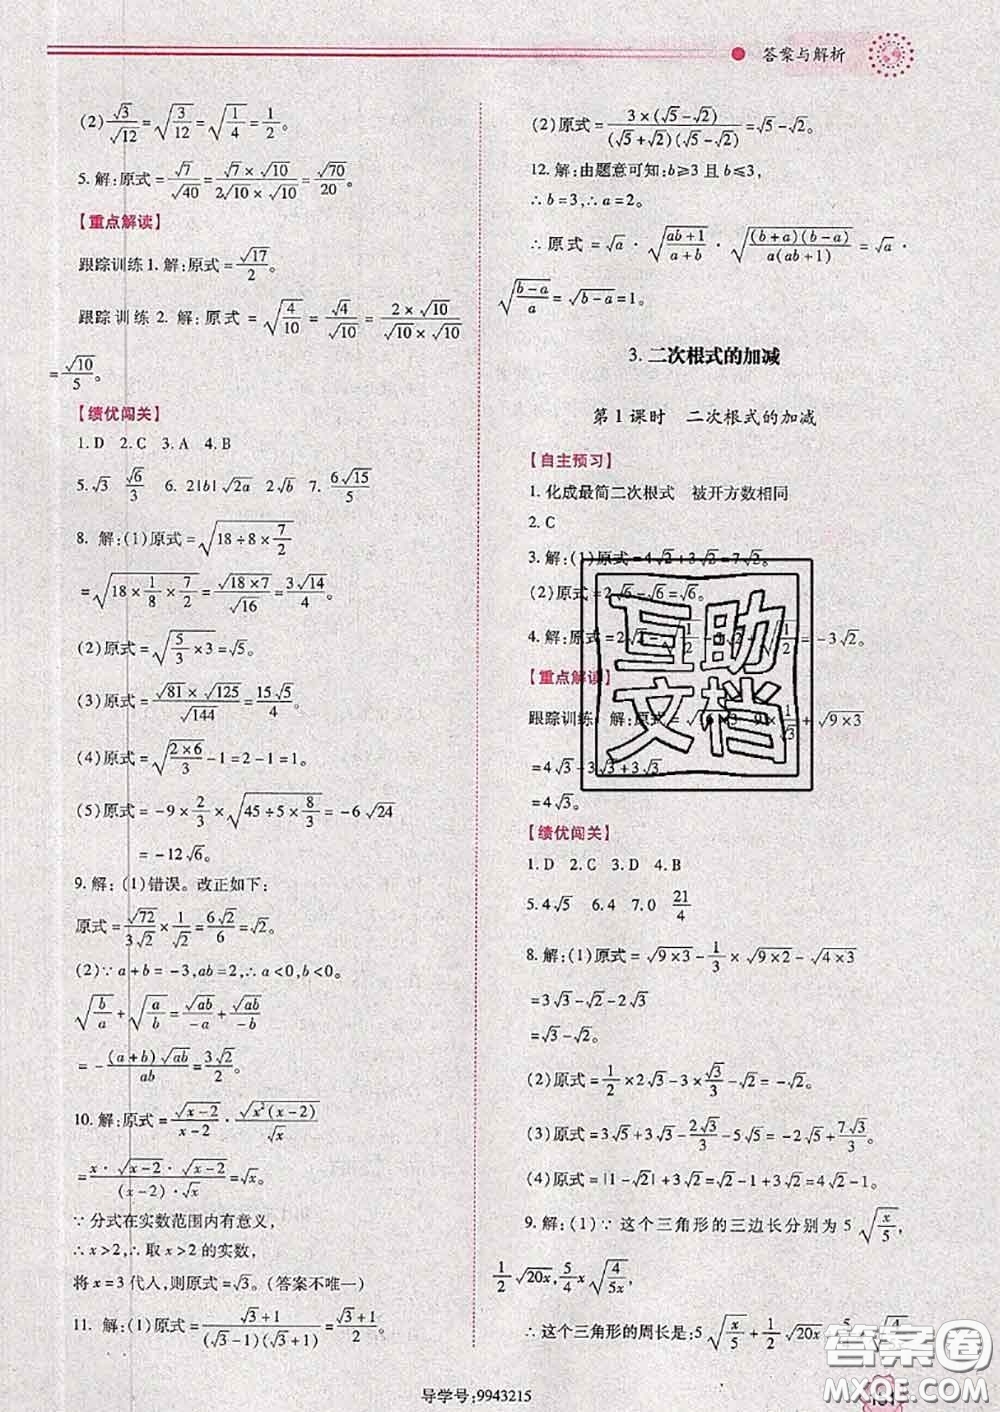 答案与解析
(2)√3/√12=√(3/12)=√(1/4)=1/2。
5. 解:原式=√7/√40=(√7×√10)/(2√10×√10)=√70/20。
【重点解读】
跟踪训练1. 解:原式=√17/2。
跟踪训练2. 解:原式=√(4/10)=√4/√10=(2×√10)/(√10×√10)
=√10/5。
【绩优闯关】
1. D 2. C 3. A 4. B
5. √3 √6/3 6. 2|b|√2a 2√b 7. 6√15/5
8. 解:(1)原式=√(18÷8×7/2)
=√(18×1/8×7/2)=√(18×7)/√16=3√14/4。
(2)原式=√(5/3×3)=√5。
(3)原式=(√81×√125)/√144=15√5/4。
(4)原式=√((2×6)/3)-1=2-1=1。
(5)原式=-9×2/3×√(45÷5×8/3)=-6√24
=-12√6。
9. 解:(1)错误。改正如下:
原式=√72/3√2×1/√2=6√2/6=√2。
(2)∵a+b=-3,ab=2,∴a<0,b<0。
√(b/a)+√(a/b)=√ab/-a+√ab/-b
=-(a+b)√ab/ab=3√2/2。
10. 解:原式=√(x-2)/(x-2)·√(x²(x-2))/√x
=(x·√(x-2)·√(x-2))/((x-2)·√x)=√x。
∵分式在实数范围内有意义,
∴x>2,∴取x>2的实数,
将x=3代人,则原式=√3。(答案不唯一)
11. 解:(1)原式=(√3+1)/((√3-1)(√3+1))=(√3+1)/2。
(2)原式=3×(√5-√2)/((√5+√2)(√5-√2))=√5-√2。
12. 解:由题意可知:b≥3且b≤3,
∴b=3,∴a=2。
∴原式=√a·√((ab+1)/(a+b))·√((b+a)(b-a)/(a(ab+1)))=√a·
√((b-a)/a)=√(b-a)=1。
3. 二次根式的加减
第1课时 二次根式的加减
【自主预习】
1. 化成最简二次根式 被开方数相同
2. C
3. 解:(1)原式=4√2+3√2=7√2。
(2)原式=2√6-√6=√6。
4. 解:原式=2√2-√ =-3√2。
【重点解读】
跟踪训练 解:原式=√ +√(9×3)
=4√3-3√3+3√3
=4√3。
【绩优闯关】
1. D 2. C 3. D 4. B
5. 4√5 6. 4 7. 0 21/4
8. 解:(1)原式=√(9×3)-1/3×√(9×2)-√(4×3)
=3√3-√2-2√3
=√3-√2。
(2)原式=1/2×2√3-3×√3/3=√3-√3=0。
(3)原式=3√5+3√3-2√3/3-5√5=-2√5+7√3/3。
(4)原式=|1-√2|+√2=√2-1+√2=2√2-1。
9. 解:(1)∵这个三角形的三边长分别为5√(x/5),
1/2√20x,5/4x√(4/5x),
∴这个三角形的周长是:5√(x/5)+1/2√20x 5/4 √(4/
互助
文档
答案圈
MXQE.COM
导学号:9943215